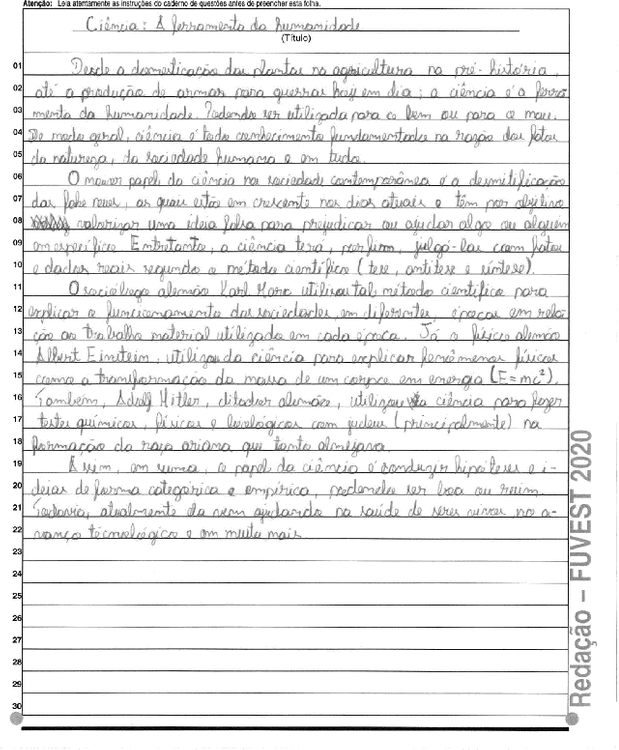 Atenção: Leia atentamente as instruções do caderno de questões antes de preencher esta folha.
Ciência: A ferramenta da humanidade
(Título)
01 Desde a domesticação das plantas na agricultura na pré-história,
02 até a produção de armas para guerras hoje em dia; a ciência é a ferra
03 menta da humanidade. Podendo ser utilizada para o bem ou para o mau.
04 De modo geral, ciência é todo conhecimento fundamentado na razão dos fatos
05 da natureza, da sociedade humana e em tudo.
06 O maior papel da ciência na sociedade contemporânea é a desmitificação
07 das fake news, as quais estão em crescente nos dias atuais e têm por objetivo
08 valorizar uma ideia falsa para prejudicar ou ajudar algo ou alguém
09 em específico. Entretanto, a ciência terá, por fim, julgá-las com fatos
10 e dados reais segundo o método científico (tese, antítese e síntese).
11 O sociólogo alemão Karl Marx utilizou tal método científico para
12 explicar o funcionamento das sociedades, em diferentes, épocas em rela
13 ção ao trabalho material utilizado em cada época. Já o físico alemão
14 Albert Einstein, utilizou da ciência para explicar fenômenos físicos
15 como a transformação da massa de um corpo em energia (E=mc²).
16 Também, Adolf Hitler, ditador alemão, utilizou a ciência para fazer
17 testes químicos, físicos e biológicos com judeus (principalmente) na
18 formação da raça ariana que tanto almejava.
19 Assim, em suma, o papel da ciência é conduzir hipóteses e i-
20 deias de forma categórica e empírica, podendo ser boa ou ruim.
21 Todavia, atualmente ela vem ajudando na saúde de seres vivos no a-
22 vanço técnológico e em muito mais.
23
24
25
26
27
28
29
30
Redação – FUVEST 2020